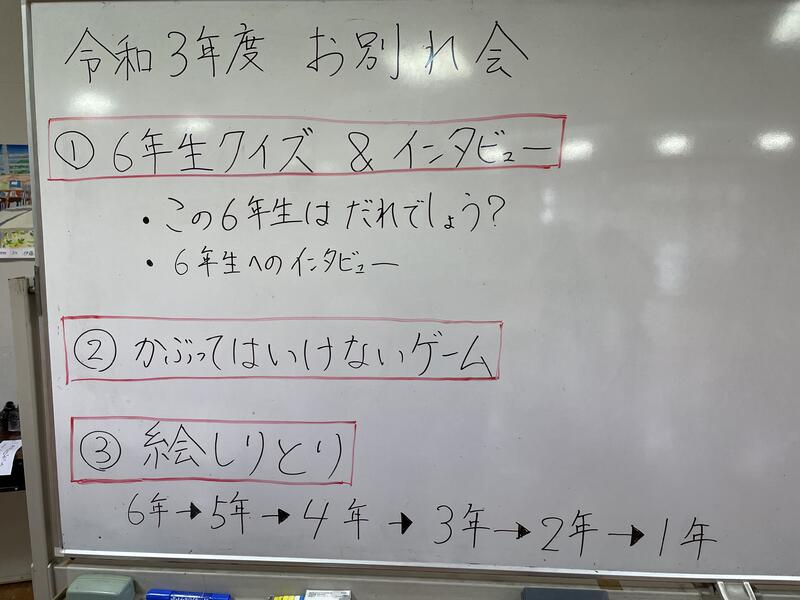 令和3年度 お別れ会
① 6年生クイズ & インタビュー
・この6年生は だれでしょう?
・6年生へのインタビュー
② かぶってはいけないゲーム
③ 絵しりとり
6年→5年→4年→3年→2年→1年